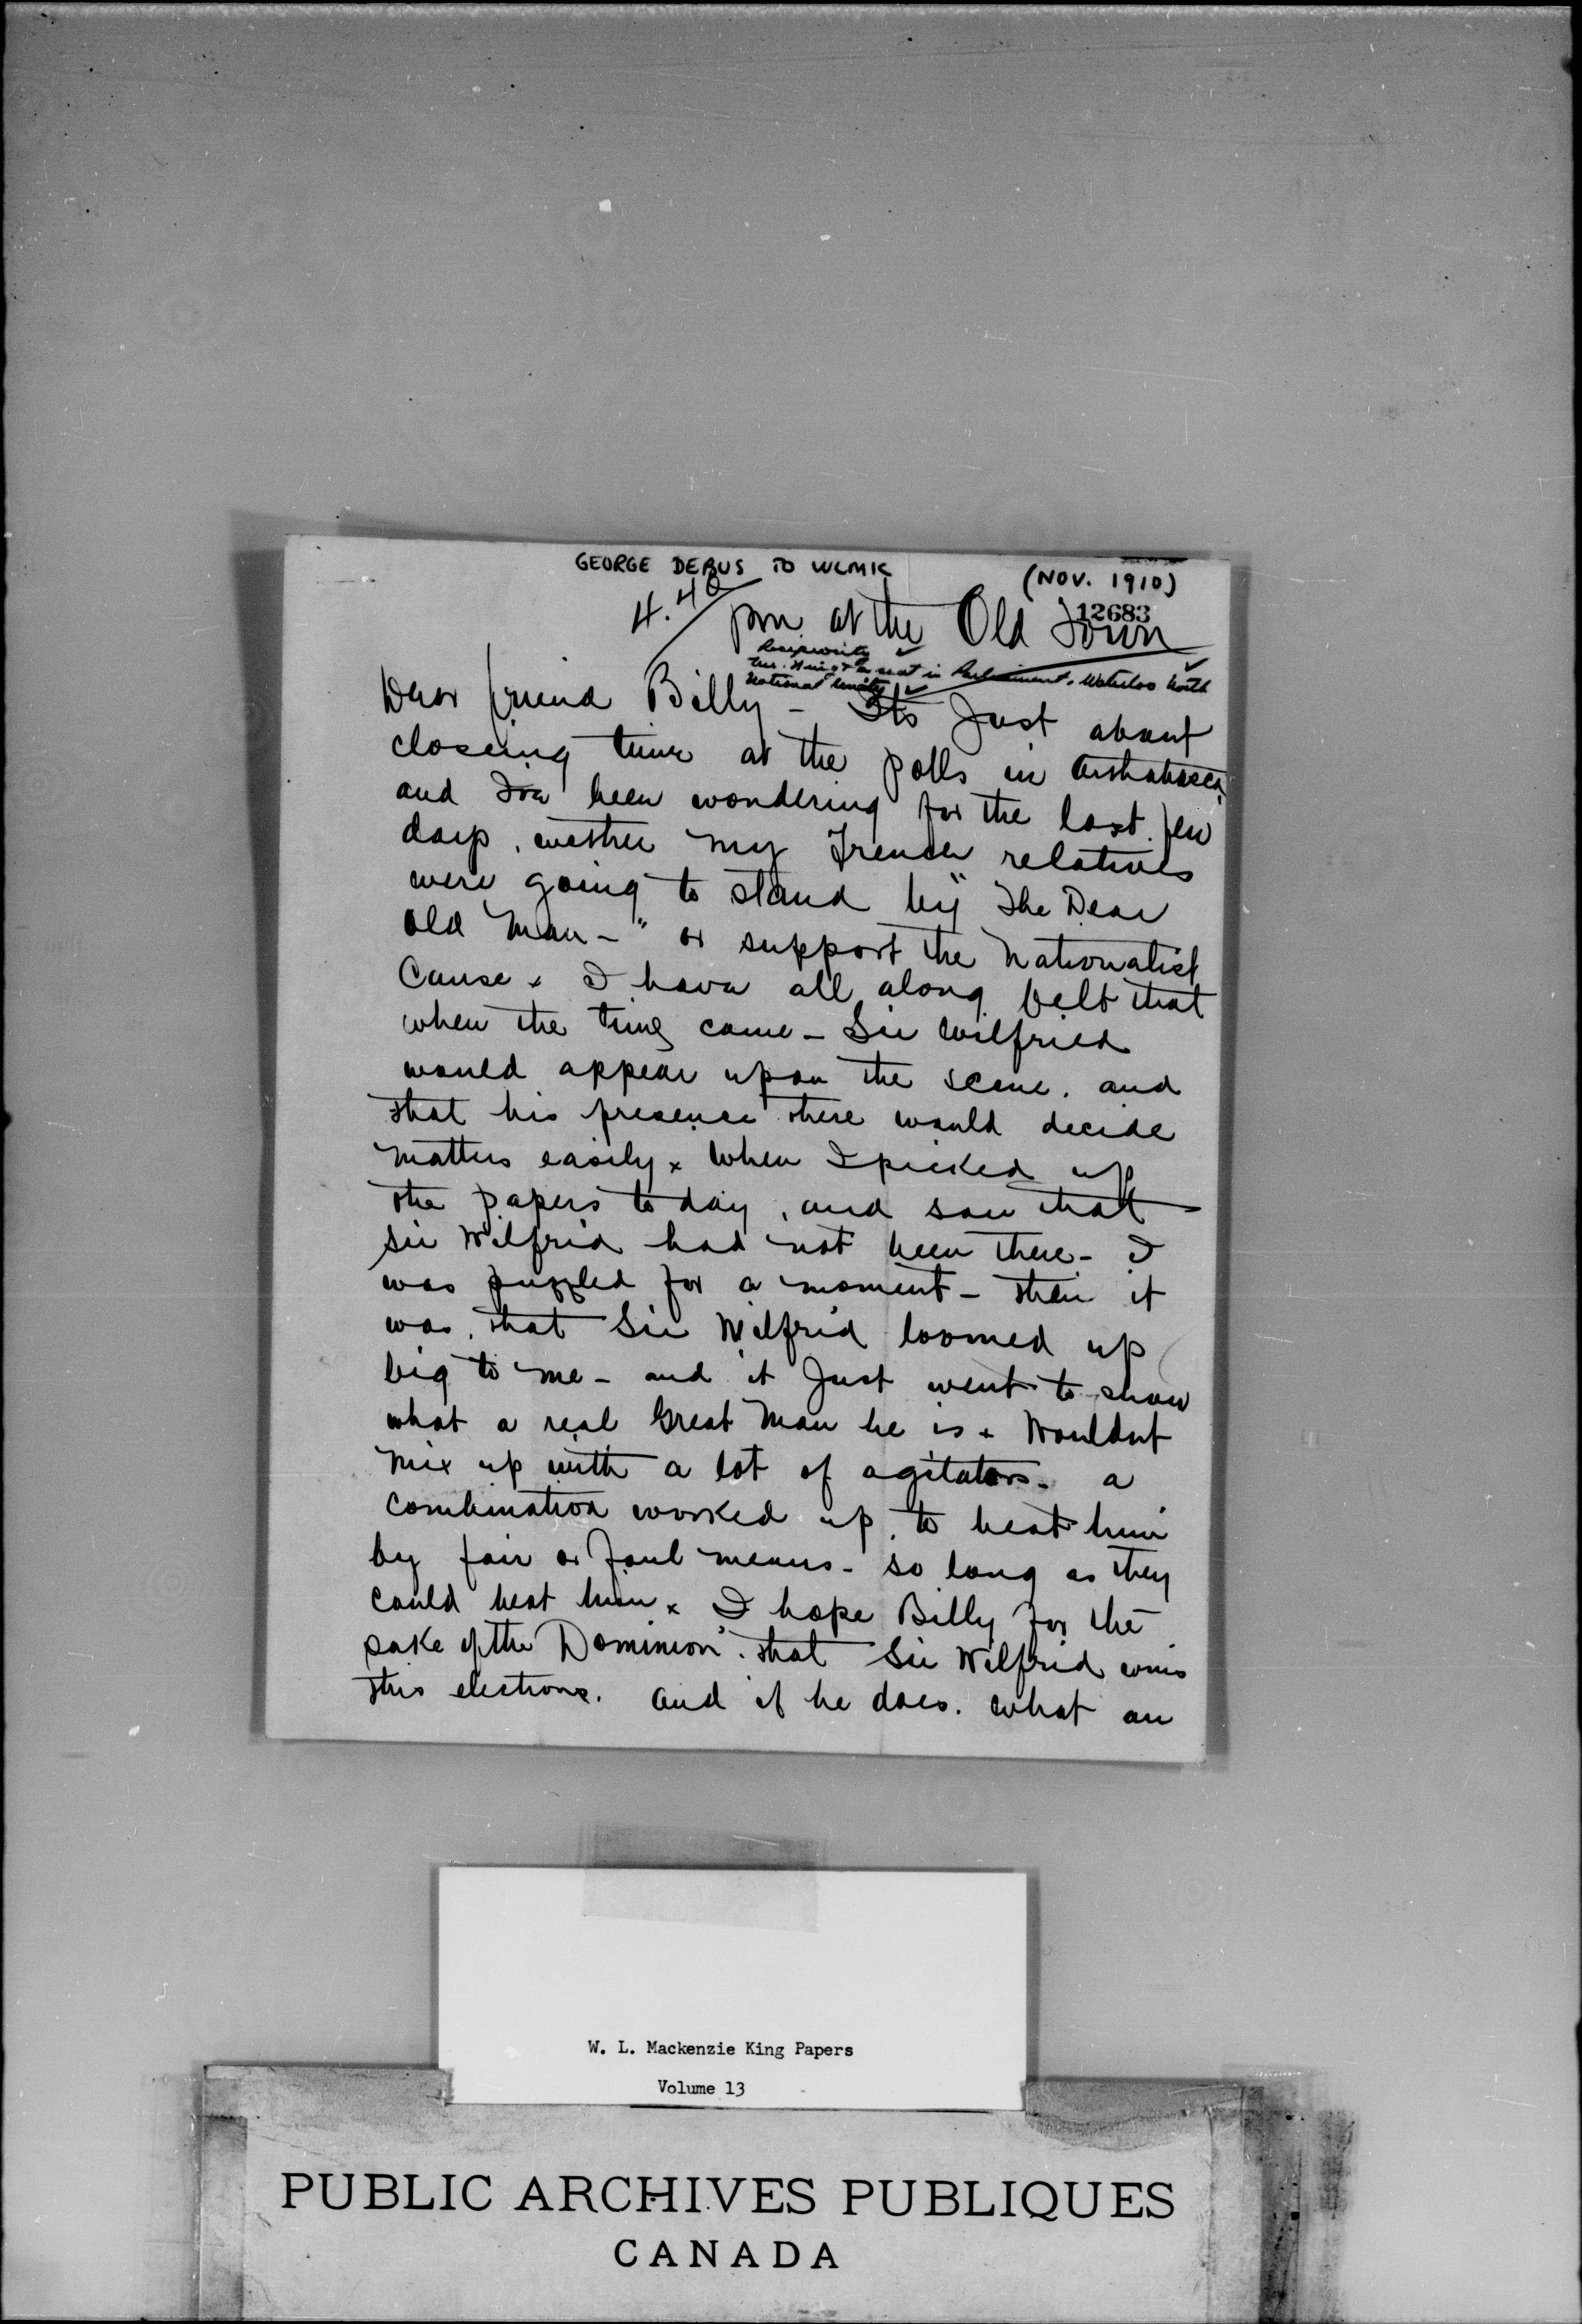 GEORGE DEBUS TO WLMK (NOV. 1910)
12683
4.40 pm at the Old Town
Reciprocity ✓
Mr. King & a seat in Parliament, Waterloo North ✓
National Unity ✓
Dear friend Billy - Its Just about
closeing time at the polls in Arthabasca,
and Ive been wondering for the last few
days, wether my French relatives
were going to stand by "The Dear
Old Man-" or support the Nationalist
Cause x I have all along felt that
when the time came - Sir Wilfried
would appear upon the scene. and
that his presence there would decide
matters easily x When I picked up
the papers to day, and saw that
Sir Wilfrid had not been there - I
was puzzled for a moment - then it
was, that Sir Wilfrid loomed up
big to me - and it Just went to show
what a real Great Man he is x Wouldnt
mix up with a lot of agitators - a
combination worked up, to beat him
by fair or foul means - so long as they
could beat him x I hope Billy for the
sake of the Dominion. that Sir Wilfrid wins
this elections. and if he does. what an
W. L. Mackenzie King Papers
Volume 13
PUBLIC ARCHIVES PUBLIQUES
CANADA